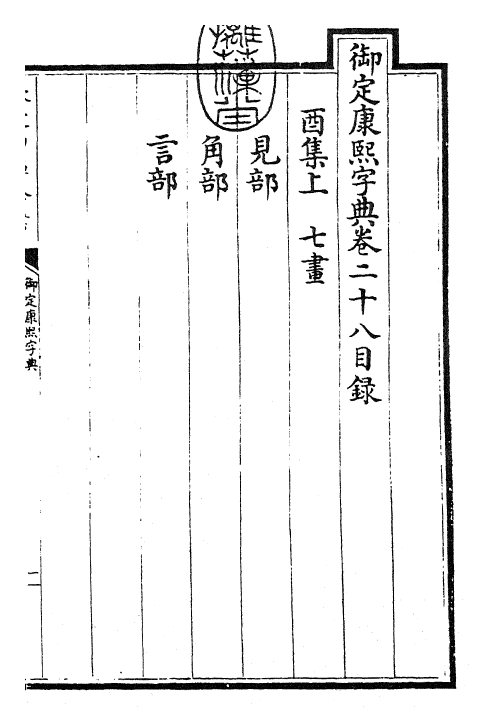 御定康熙字典卷二十八目錄
酉集上　七畫
見部
角部
言部
御定康熙字典